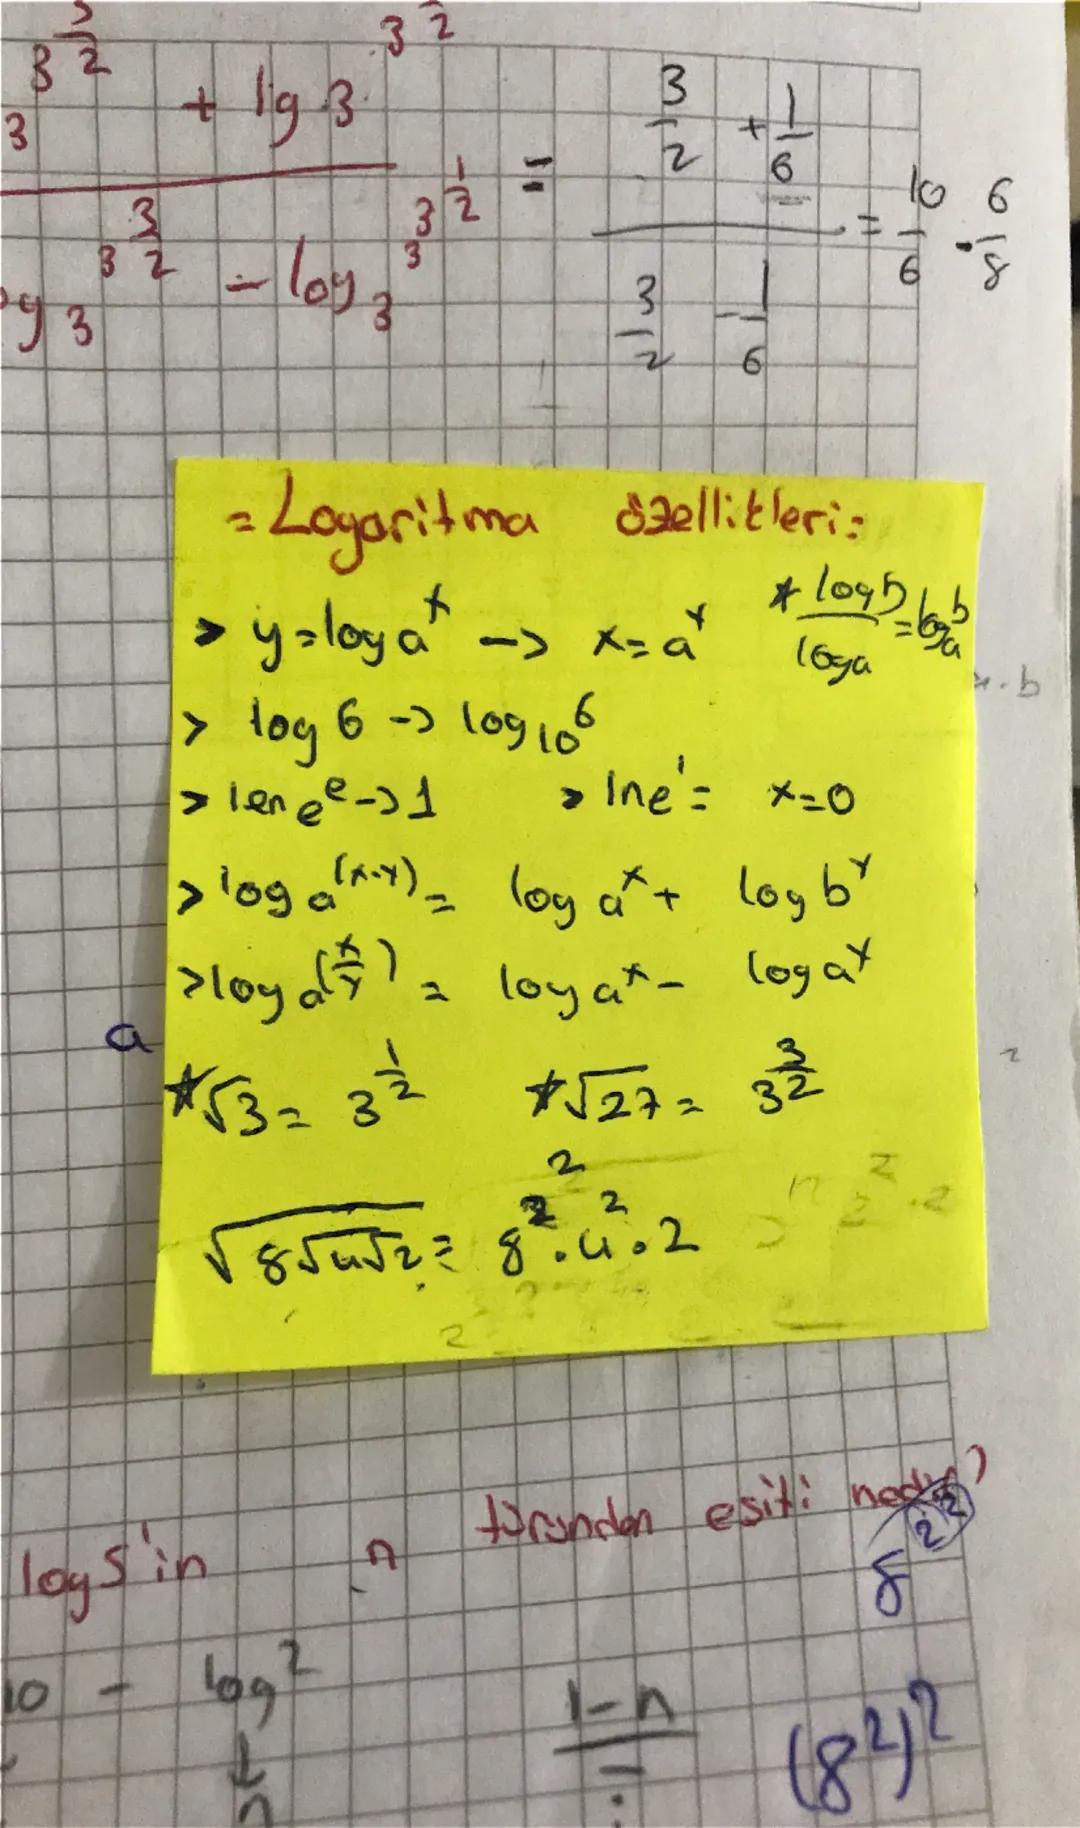 3 3^(3/2) + lg 3 3^(1/2)
log 3 3^(3/2) - log 3 3^(3^(1/2))
= (3/2 + 1/6) / (3/2 - 1/6) = 10/6 · 6/8
= Logaritma özellikleri:
> y = log a^x -> x = a^y
* log b / log a = log a^b
> log 6 -> log 10^6
> len e^e -> 1 > ln e^1 = x=0
> log a^(x.y) = log a^x + log b^y
> log a^(x/y) = log a^x - log a^y
a
x.b
*√3 = 3^(1/2) *√27 = 3^(3/2)
√(8√4√2) = 8^(2^2) . 4^2 . 2
log 5'in n türünden eşiti nedir?
8^(2^2)
10 - log 2
↓
n
1-n
(8^2)^2